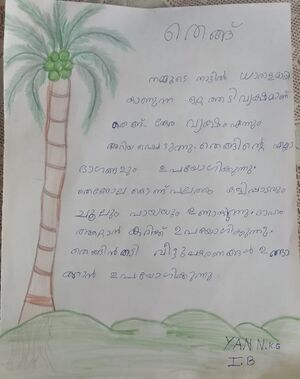 തെങ്ങ്
നമ്മുടെ നാട്ടിൽ ധാരാളമായി
കാണുന്ന ഒറ്റത്തടി വൃക്ഷമാണ്
തെങ്ങ്. കേര വൃക്ഷം എന്നും
അറിയപ്പെടുന്നു. തെങ്ങിന്റെ എല്ലാ
ഭാഗങ്ങളും ഉപയോഗിക്കുന്നു.
തെങ്ങോല കൊണ്ട് പലതരം കളിപ്പാട്ടവും
ചൂലും പായയും ഉണ്ടാക്കുന്നു. ദാഹം
അകറ്റാൻ കരിക്ക് ഉപയോഗിക്കുന്നു.
തെങ്ങിൻതടി വീട്ടുപകരണങ്ങൾ ഉണ്ടാ
ക്കാൻ ഉപയോഗിക്കുന്നു.
YAN N.K.G
I.B